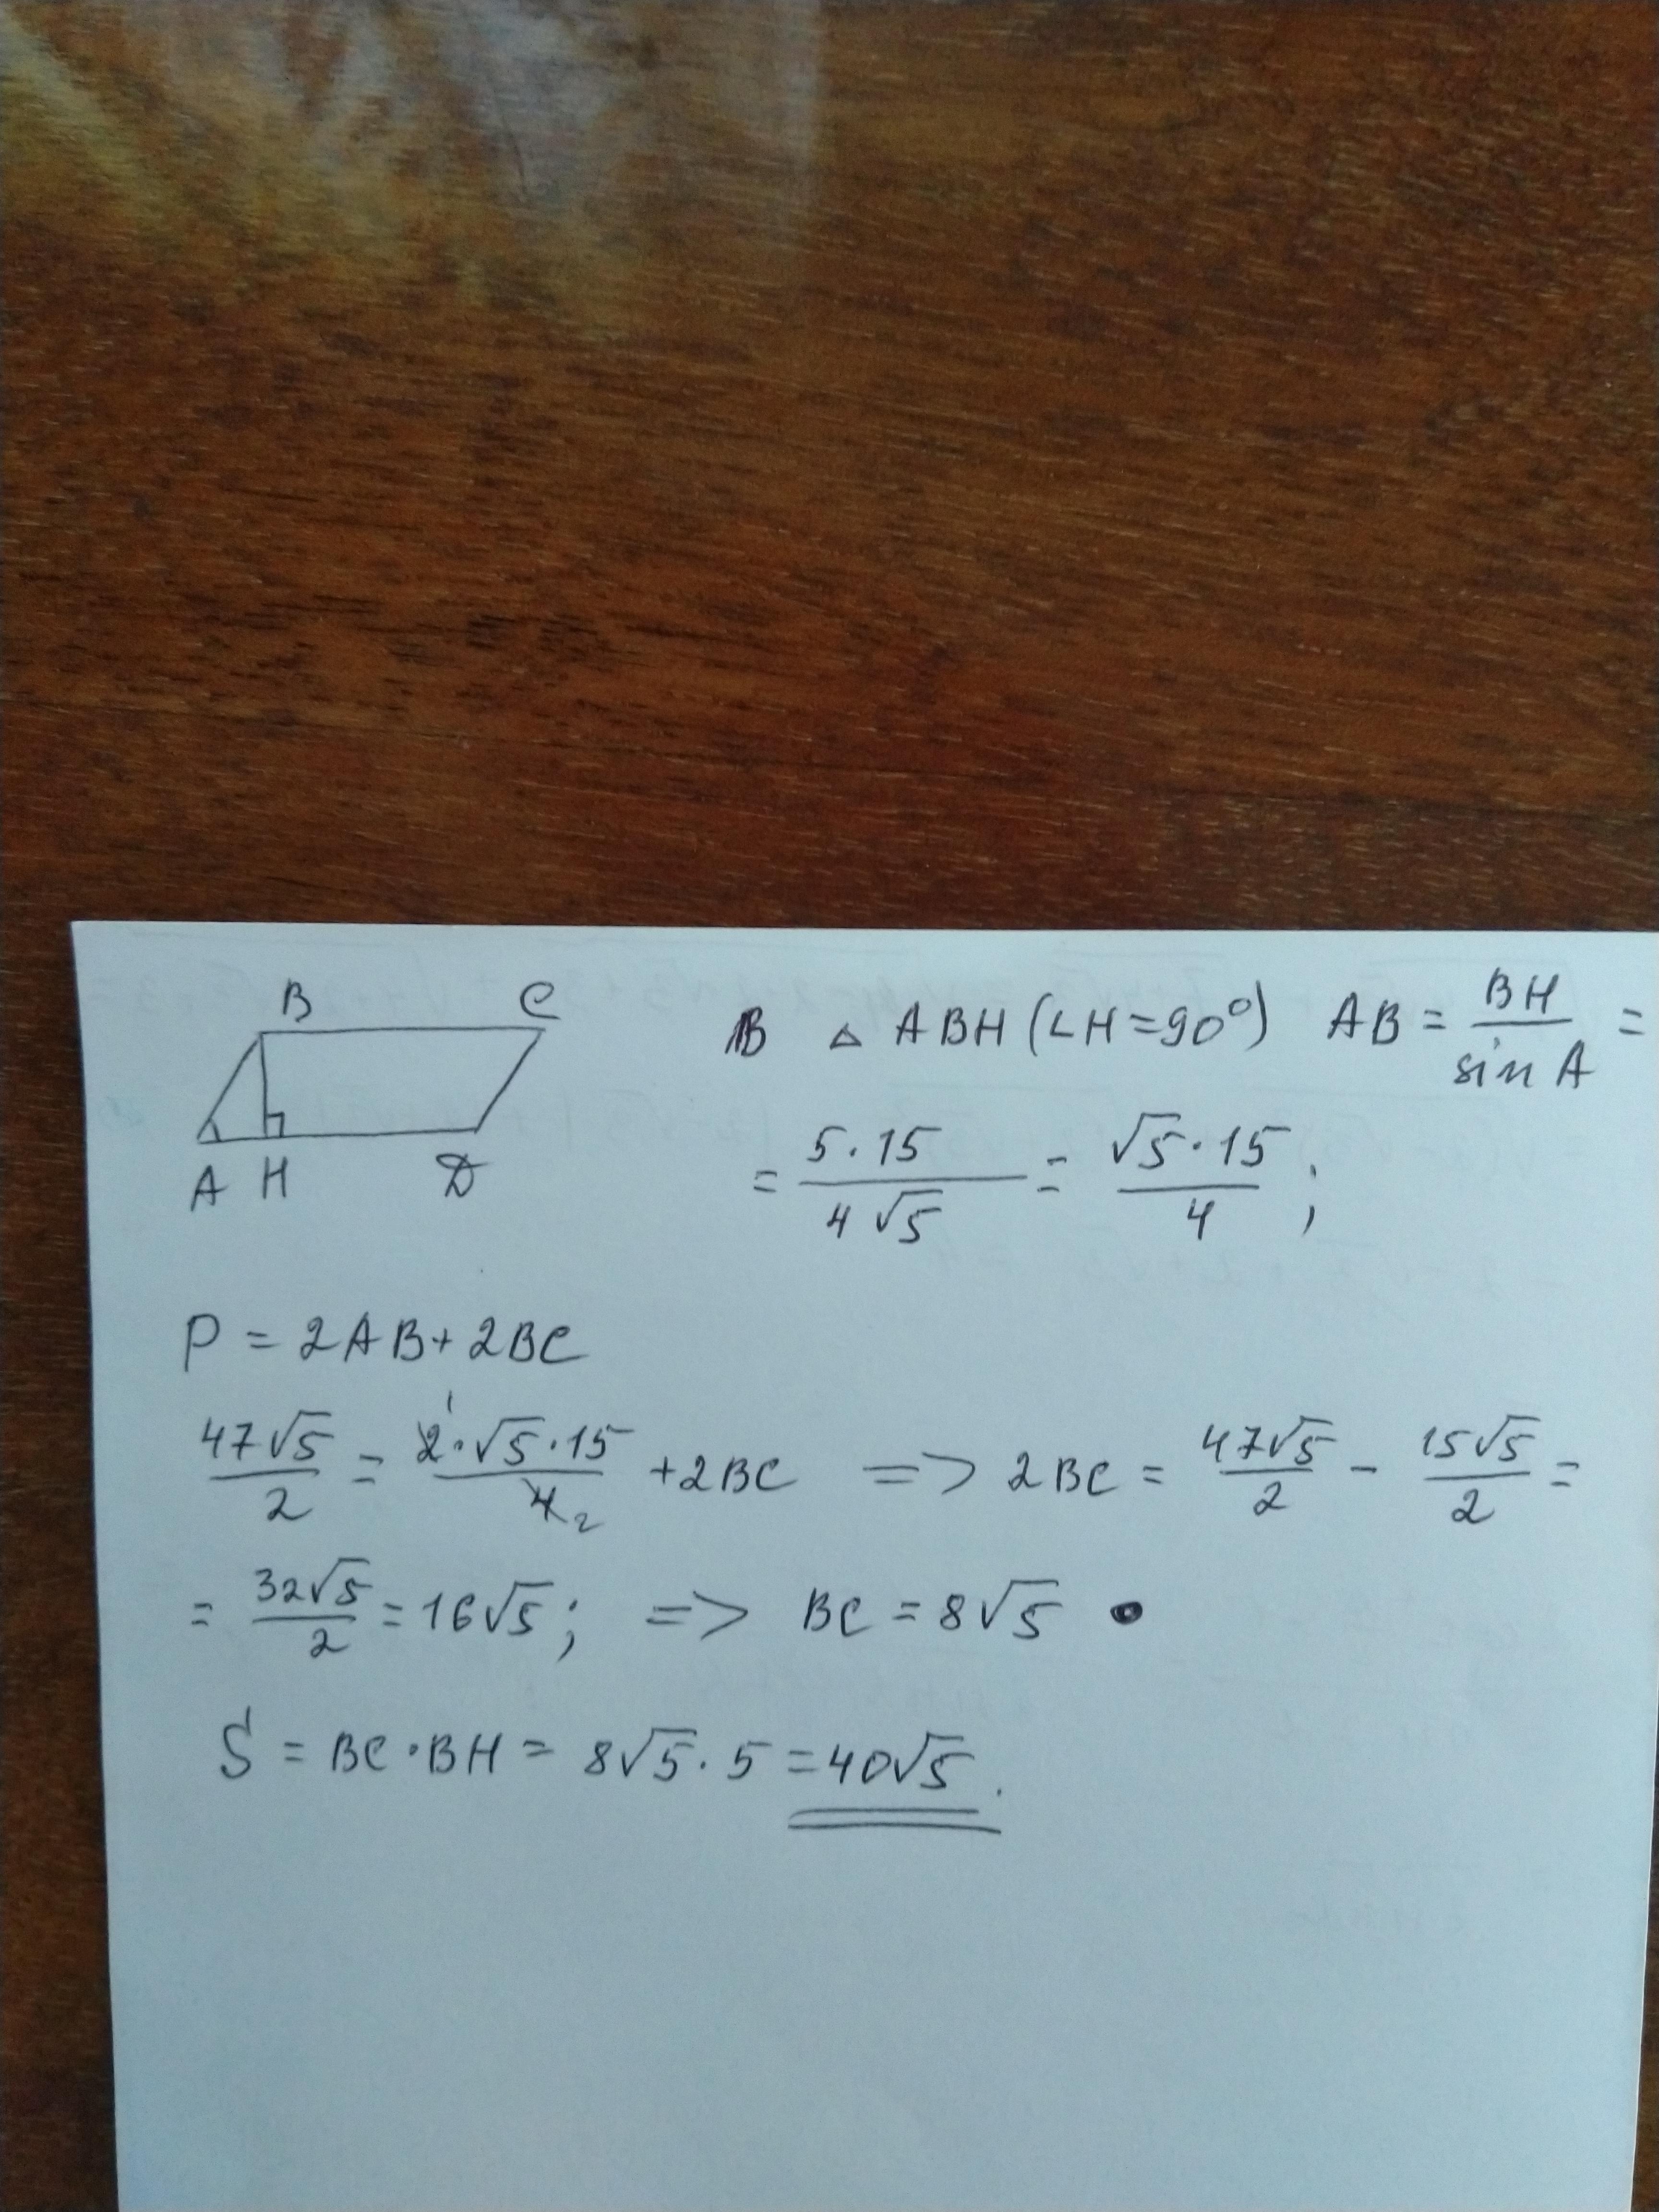 B C
A H D
В △ ABH (∠H=90°) AB = BH/sin A =
= 5·15/4√5 = √5·15/4 ;
P = 2AB + 2BC
47√5/2 = 2¹·√5·15/4₂ + 2BC => 2BC = 47√5/2 - 15√5/2 =
= 32√5/2 = 16√5 ; => BC = 8√5
S = BC·BH = 8√5·5 = 40√5.